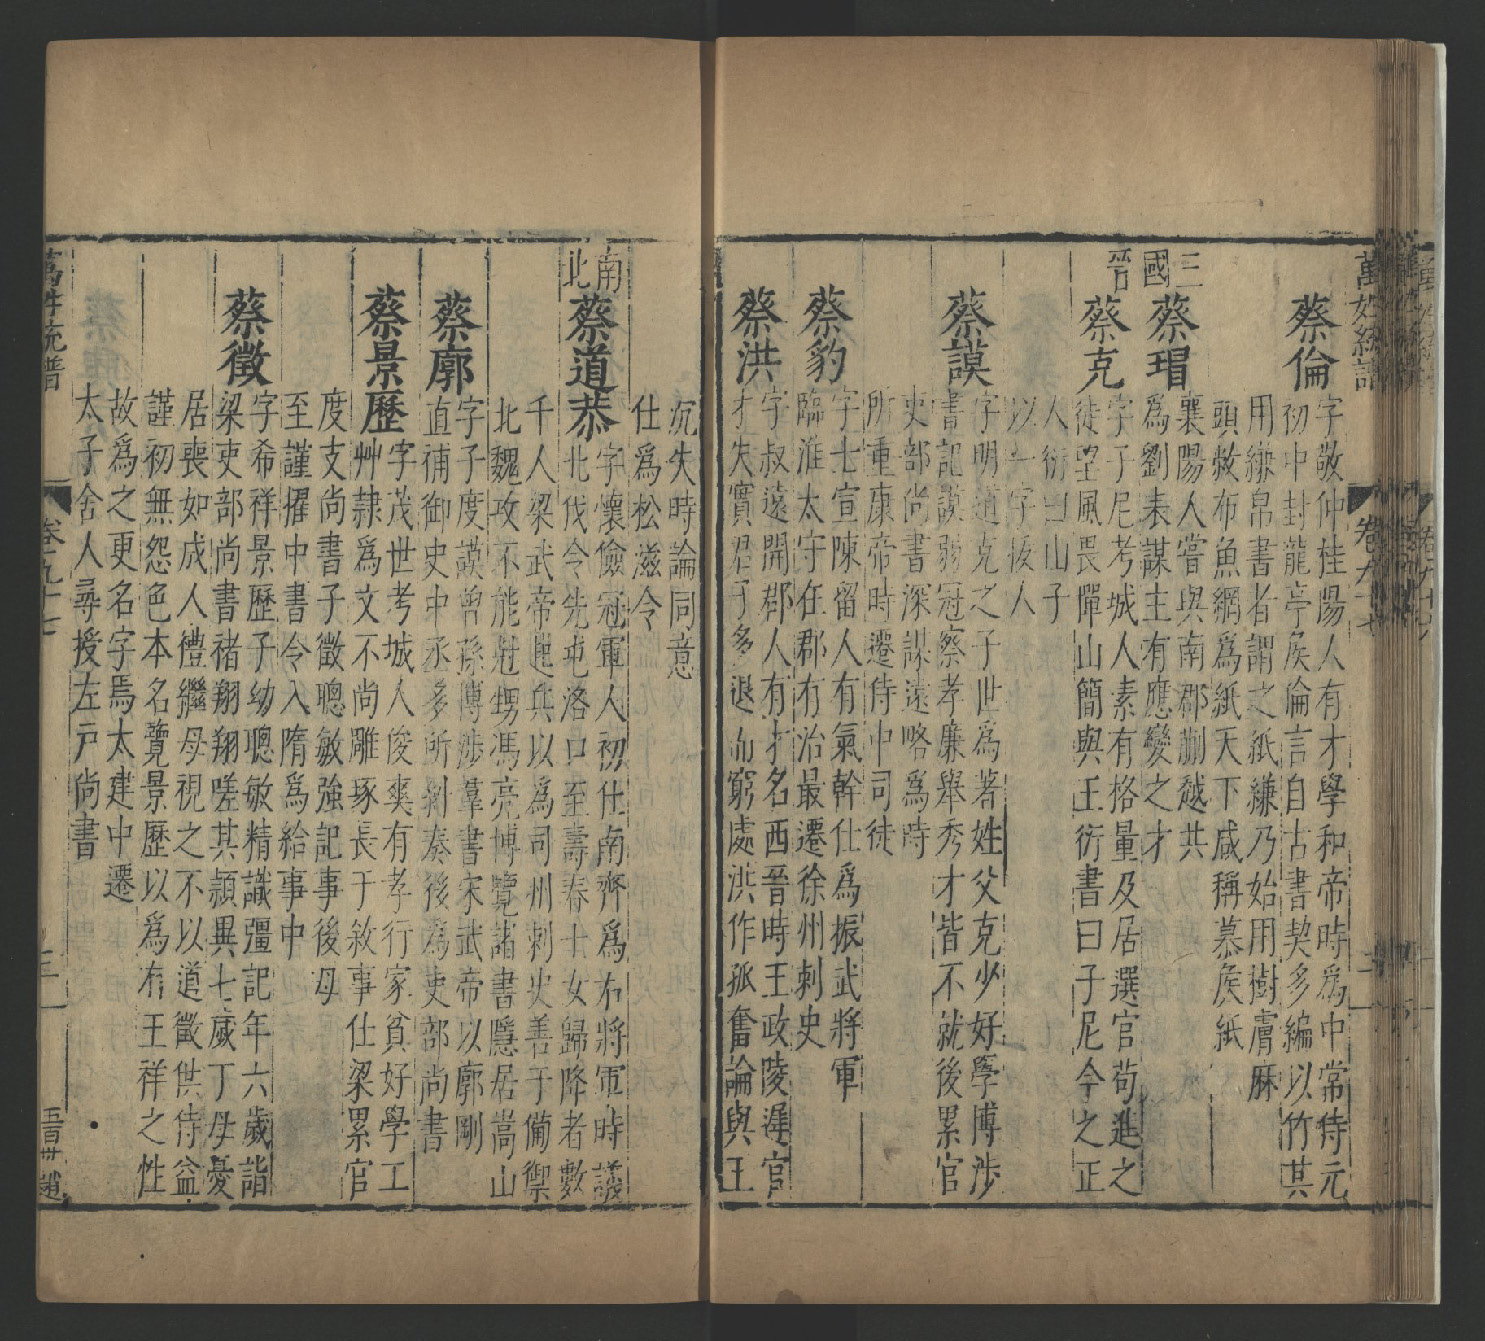 萬姓統譜
卷九十七
蔡倫
字敬仲桂陽人有才學和帝時爲中常侍元
初中封龍亭侯倫言自古書契多編以竹其
用縑帛書者謂之紙縑乃始用樹膚麻
頭敝布魚網爲紙天下咸稱慕侯紙
三國
蔡瑁
襄陽人嘗與南郡蒯越共
爲劉表謀主有應變之才
晉
蔡克
字子尼考城人素有格量及居選官苟進之
徒望風畏憚山簡與王衍書曰子尼今之正
人衍曰山子
以一字拔人
蔡謨
字明道克之子世爲著姓父克少好學博涉
書記謨弱冠察孝廉舉秀才皆不就後累官
吏部尚書深謀遠略爲時
所重康帝時遷侍中司徒
蔡豹
字士宣陳留人有氣幹仕爲振武將軍
臨淮太守在郡有治最遷徐州刺史
蔡洪
字叔遠開郡人有才名西晉時王政陵遲官
才失實君子多退而窮處洪作孤奮論與王
沉失時論同意
仕爲松滋令
南北
蔡道恭
字懷儉冠軍人初仕南齊爲右將軍時議
北伐令先屯洛口至壽春士女歸降者數
千人梁武帝起兵以爲司州刺史善于備禦
北魏攻不能尅甥馮亮博覽諸書隱居嵩山
蔡廓
字子度謨曾孫博涉羣書宋武帝以廓剛
直補御史中丞多所糾奏後爲吏部尚書
蔡景歷
字茂世考城人俊爽有孝行家貧好學工
艸隸爲文不尚雕琢長于敘事仕梁累官
度支尚書子徵聰敏強記事後母
至謹擢中書令入隋爲給事中
蔡徵
字希祥景歷子幼聰敏精識彊記年六歲詣
梁吏部尚書褚翔翔嗟其穎異七歲丁母憂
居喪如成人禮繼母視之不以道徵供侍益
謹初無怨色本名覽景歷以爲有王祥之性
故爲之更名字焉太建中遷
太子舍人尋授左戸尚書
萬姓統譜
卷九十七